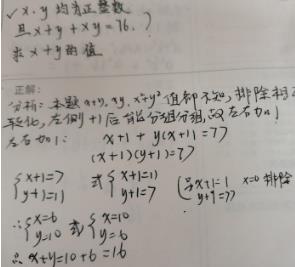 ✓ x、y 均为正整数
且 x+y+xy=76.?
求 x+y 的值
正解:
分析: 本题 x+y, xy, x²+y² 值都不知, 排除
左侧+1后能分组分, 故左右加1
左右加1: x+1+y(x+1)=77
(x+1)(y+1)=77
{x+1=7 y+1=11 或 {x+1=11 y+1=7 (另x+1=1 y+1=77 x=0 排除
∴{x=6 y=10 或 {x=10 y=6
∴x+y=10+6=16